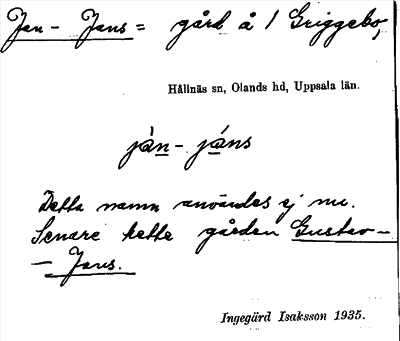 Jan - Jans = gård å 1 Griggebo,
Hållnäs sn, Olands hd, Uppsala län.
ján - jáns
Detta namn användes ej nu.
Senare hette gården Gustav-
- Jans.
Ingegärd Isaksson 1935.